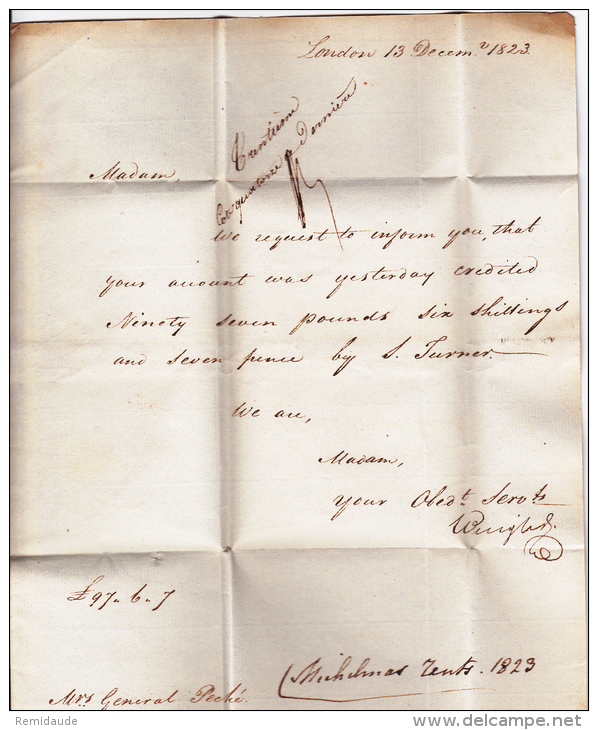 London 13 Decem.r 1823.
Madam,
We request to inform you, that
your account was yesterday credited
Ninety seven pounds six shillings
and seven pence by S. Turner.
We are,
Madam,
Your Obedt. Servts
£97„ 6„ 7
Michelmas rents. 1823
Mrs General Peché.
Remidaude
www.delcampe.net